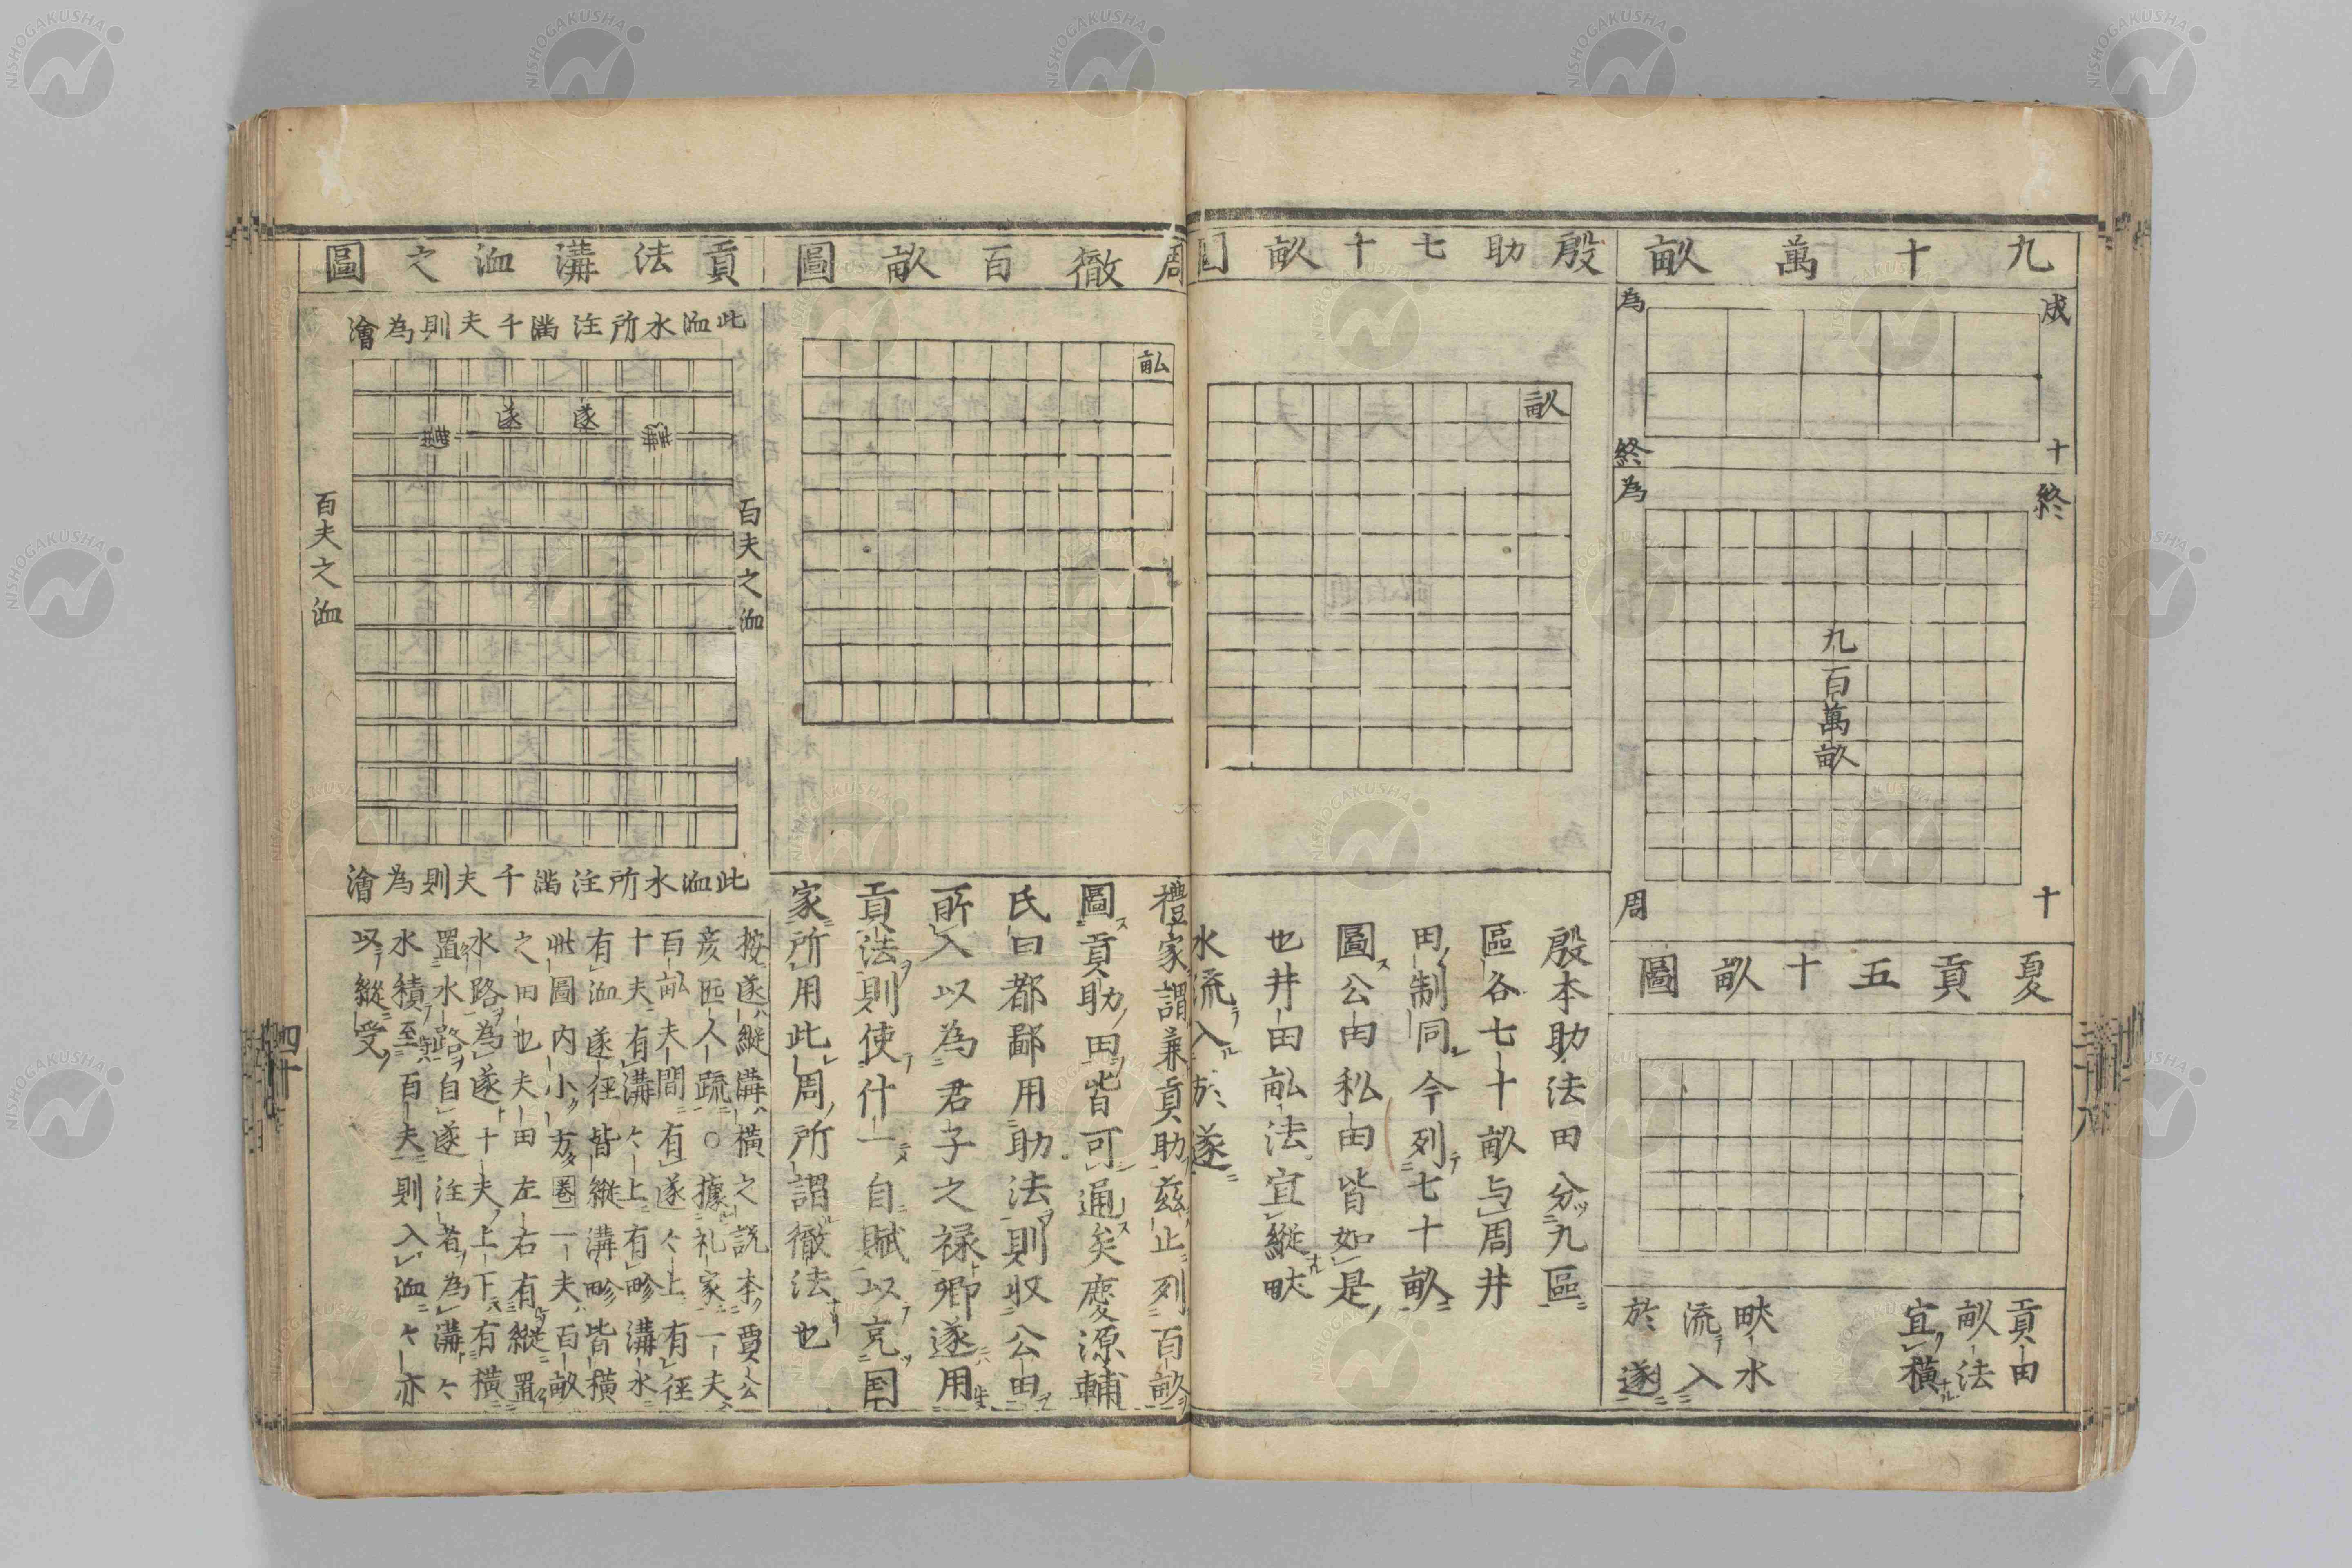 九十萬畝
成
十
為
終
終
十
為
周
九百萬畝
夏貢五十畝圖
貢田
畝法
宜横
畎水
流入
於遂
殷助七十畝圖
畝
殷本助法田分九區
區各七十畝与周井
田制同今列七十畝
圖公田私田皆如是
也井田畝法宜縱畎
水流入於遂
周徹百畝圖
畝
禮家謂兼貢助兹止列百畝
圖貢助田皆可通矣慶源輔
氏曰都鄙用助法則收公田
所入以為君子之禄鄉遂用
貢法則使什一自賦以充国
家所用此周所謂徹法也
貢法溝洫之圖
此洫水所注滿千夫則為澮
遂
遂
百夫之洫
百夫之洫
此洫水所注滿千夫則為澮
按遂縱溝横之説本賈公
彦匠人疏○據礼家一夫
百畝夫間有遂々上有径
十夫有溝々上有畛溝水
有洫遂径皆縱溝畛皆横
此圖内小方圏一夫百畝
之田也夫田左右有縱置
水路為遂十夫上下有横
置水路自遂注者為溝々
水積至百夫則入洫々亦
以縱受
三十九
四十
NISHOGAKUSHA